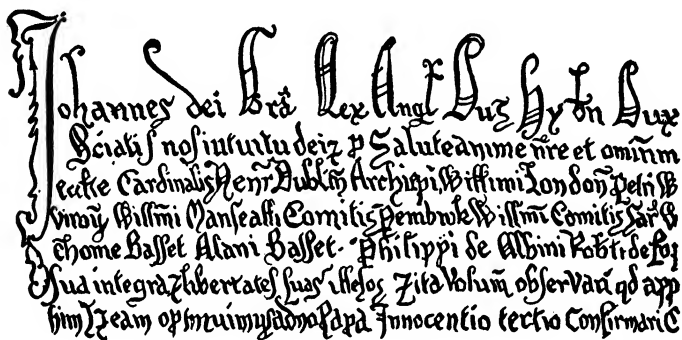 Johannes dei Grã Rex Angł Dns Hybn Dux
Sciatis nos intuitu dei ⁊ p Salute anime nr̃e et omnium
eccłe Cardinalis Henr̃ Dublin̄ Archiepi Willimi London̄ Petri W
Willmi Marescalli Comitis Pembrok Willmi Comitis Sar̃ W
Thome Basset Alani Basset Philippi de Albini Robti de Rop
sua integra ⁊ libertates suas illesas ⁊ ita volum̄ observari qd app
eam optinuimus a dno Papa Innocentio tertio Confirmari